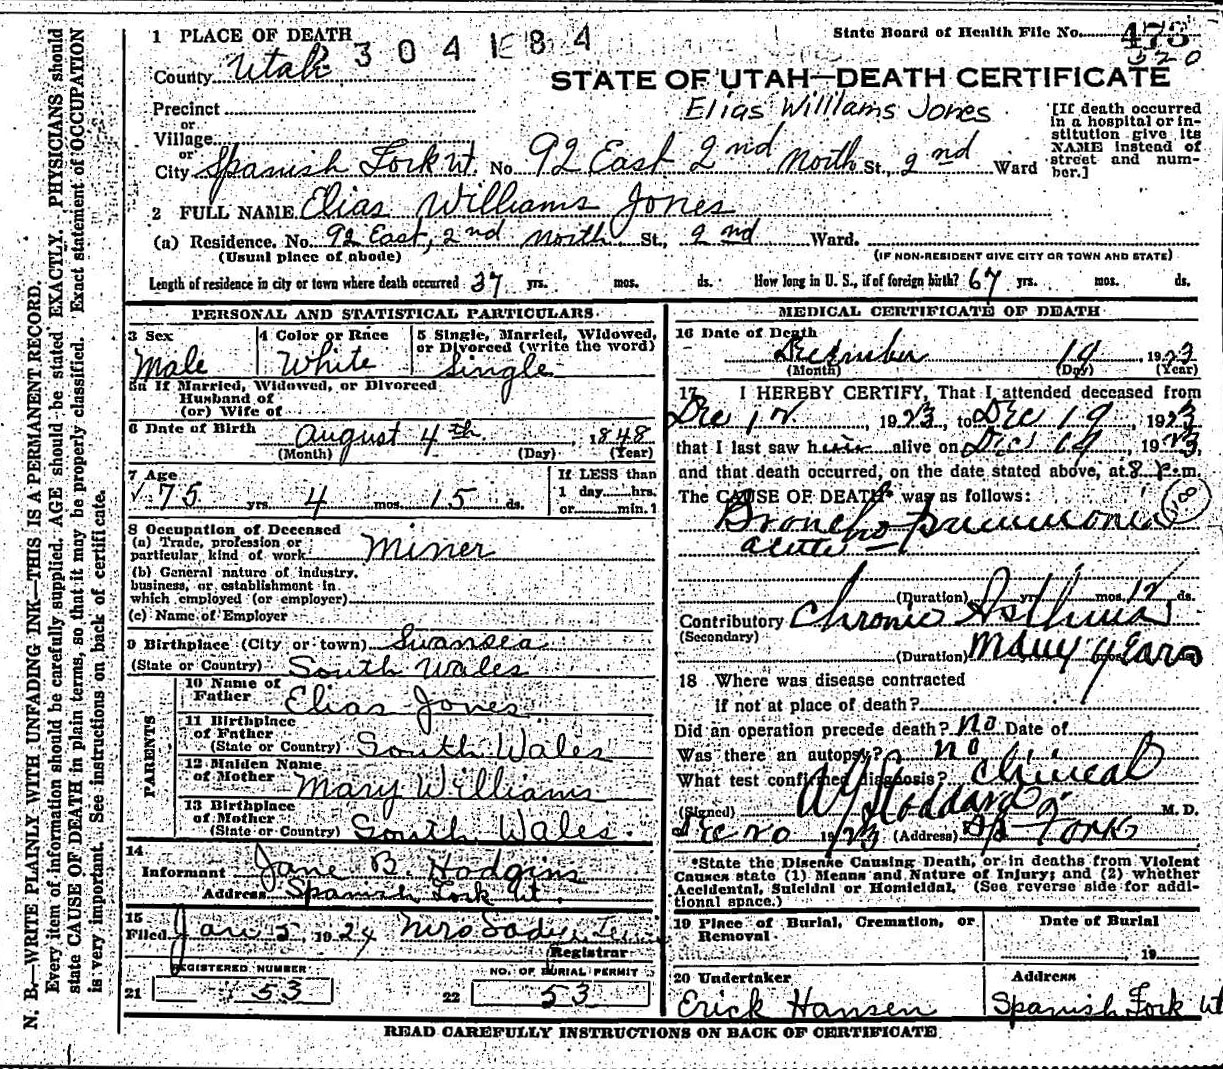 N. B.—WRITE PLAINLY WITH UNFADING INK—THIS IS A PERMANENT RECORD.
Every item of information should be carefully supplied. AGE should be stated EXACTLY. PHYSICIANS should
state CAUSE OF DEATH in plain terms, so that it may be properly classified. Exact statement of OCCUPATION
is very important. See instructions on back of certificate.
1 PLACE OF DEATH
State Board of Health File No. 473
304 E 84
520
County Utah
STATE OF UTAH—DEATH CERTIFICATE
Elias Williams Jones
Precinct
or
Village
or
City Spanish Fork Ut. No. 92 East 2nd North St., 2nd Ward
[If death occurred
in a hospital or in-
stitution give its
NAME instead of
street and num-
ber.]
2 FULL NAME Elias Williams Jones
(a) Residence. No. 92 East, 2nd North St., 2nd Ward.
(Usual place of abode)
(IF NON-RESIDENT GIVE CITY OR TOWN AND STATE)
Length of residence in city or town where death occurred 37 yrs. mos. ds. How long in U. S., if of foreign birth? 67 yrs. mos. ds.
PERSONAL AND STATISTICAL PARTICULARS
3 Sex
Male
4 Color or Race
White
5 Single, Married, Widowed,
or Divorced (write the word)
Single
5a If Married, Widowed, or Divorced
Husband of
(or) Wife of
6 Date of Birth August 4th, 1848
(Month) (Day) (Year)
7 Age
75 yrs. 4 mos. 15 ds.
If LESS than
1 day......hrs.
or......min. 1
8 Occupation of Deceased
(a) Trade, profession or
particular kind of work Miner
(b) General nature of industry,
business, or establishment in
which employed (or employer)
(c) Name of Employer
9 Birthplace (City or town) Swansea
(State or Country) South Wales
PARENTS
10 Name of
Father Elias Jones
11 Birthplace
of Father
(State or Country) South Wales
12 Maiden Name
of Mother Mary Williams
13 Birthplace
of Mother
(State or Country) South Wales.
14
Informant Jane B. Hodgins
Address Spanish Fork Ut.
15
Filed Jan 5, 1924
Registrar
REGISTERED NUMBER
21 53
NO. OF BURIAL PERMIT
22 53
MEDICAL CERTIFICATE OF DEATH
16 Date of Death
December 19, 1923
(Month) (Day) (Year)
17 I HEREBY CERTIFY, That I attended deceased from
Dec 12, 1923, to Dec 19, 1923
that I last saw him alive on Dec 19, 1923,
and that death occurred, on the date stated above, at 8 P.m.
The CAUSE OF DEATH* was as follows:
Broncho pneumonia
acute
(Duration) yrs. mos. 12 ds.
Contributory Chronic Asthma
(Secondary)
(Duration) many years
18 Where was disease contracted
if not at place of death?
Did an operation precede death? no Date of
Was there an autopsy? no
What test confirmed diagnosis? Clinical
(Signed) Stoddard M. D.
Dec 20 1923 (Address) Sp Fork
*State the Disease Causing Death, or in deaths from Violent
Causes state (1) Means and Nature of Injury; and (2) whether
Accidental, Suicidal or Homicidal. (See reverse side for addi-
tional space.)
19 Place of Burial, Cremation, or
Removal
Date of Burial
19
20 Undertaker
Erick Hansen
Address
Spanish Fork Ut
READ CAREFULLY INSTRUCTIONS ON BACK OF CERTIFICATE